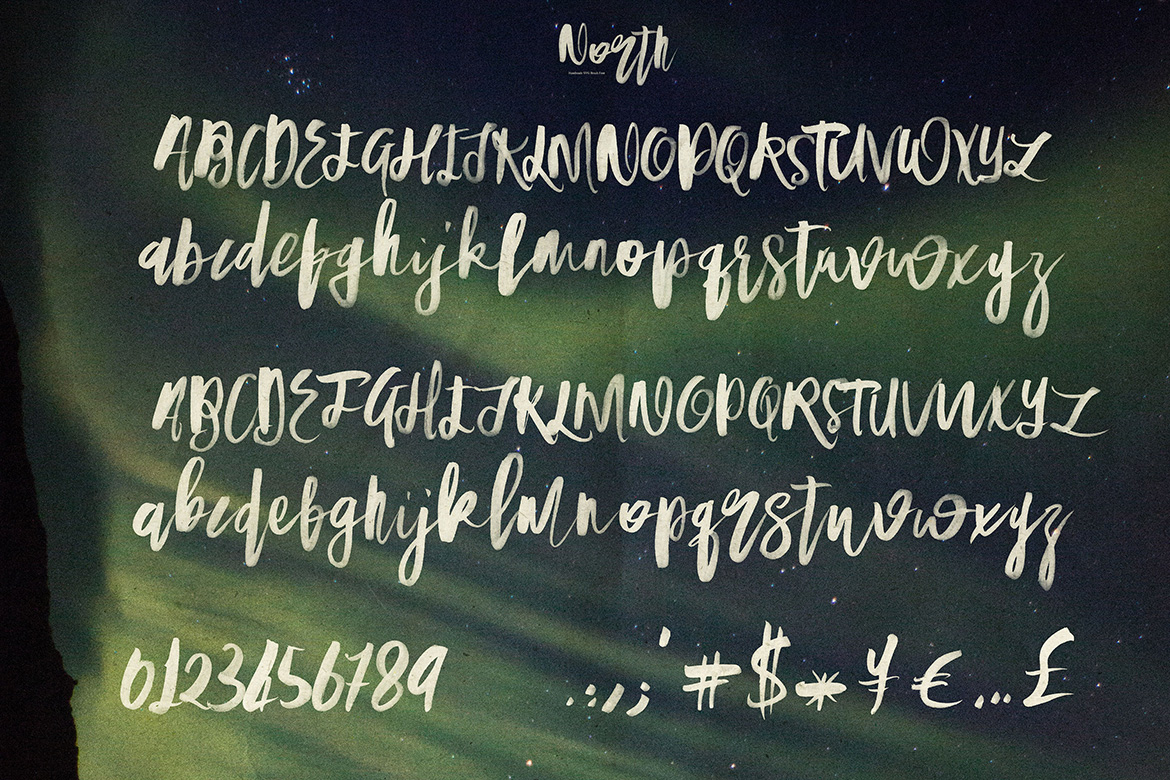 North
Handmade SVG Brush Font
ABCDEFGHIJKLMNOPQRSTUVWXYZ
abcdefghijklmnopqrstuvwxyz
ABCDEFGHIJKLMNOPQRSTUVWXYZ
abcdefghijklmnopqrstuvwxyz
0123456789 .:,;' #$*¥€…£